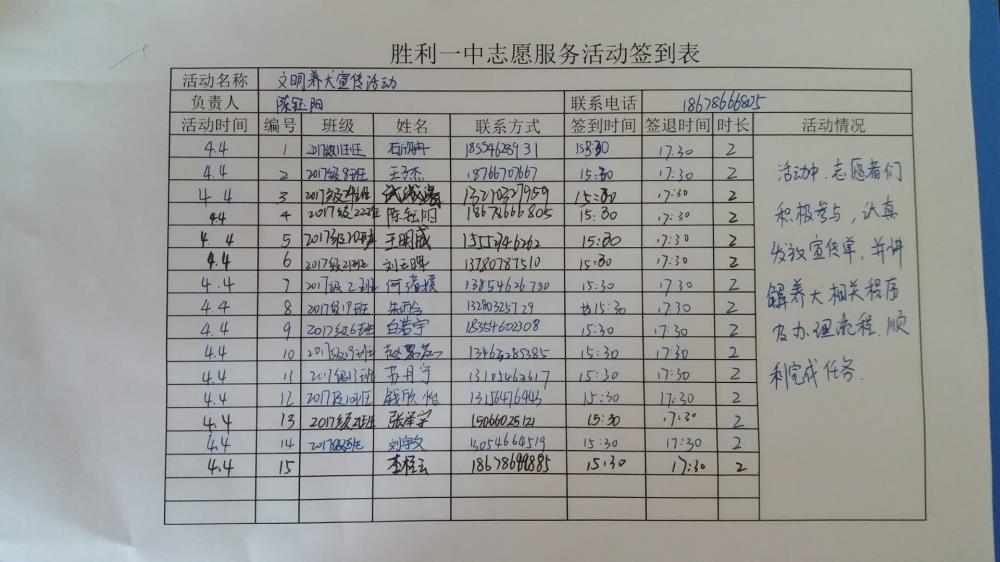 胜利一中志愿服务活动签到表
活动名称 文明养犬宣传活动
负责人 陈钰阳 联系电话 18678666805
活动时间 编号 班级 姓名 联系方式 签到时间 签退时间 时长 活动情况
4.4 1 15:30 17:30 2
4.4 2 2017级9班 18766707667 15:30 17:30 2
4.4 3 13210327959 15:30 17:30 2
4.4 4 2017级22班 陈钰阳 18678666805 15:30 17:30 2
4.4 5 王明成 15552746262 15:30 17:30 2
4.4 6 2017级21班 13780787510 15:30 17:30 2
4.4 7 2017级2班 13854626730 15:30 17:30 2
4.4 8 2017级19班 13280325729 15:30 17:30 2
4.4 9 2017级6班 18354602308 15:30 17:30 2
4.4 10 2017级19班 13463285385 15:30 17:30 2
4.4 11 2017级13班 苏丹宁 13105462617 15:30 17:30 2
4.4 12 2017级10班 钱欣怡 13156476443 15:30 17:30 2
4.4 13 2017级2班 张泽宇 15066025121 15:30 17:30 2
4.4 14 13054664519 15:30 17:30 2
4.4 15 15:30 17:30 2
活动中,志愿者们
积极参与,认真
发放宣传单,并讲
解养犬相关程历
及办理流程.顺
利完成任务.